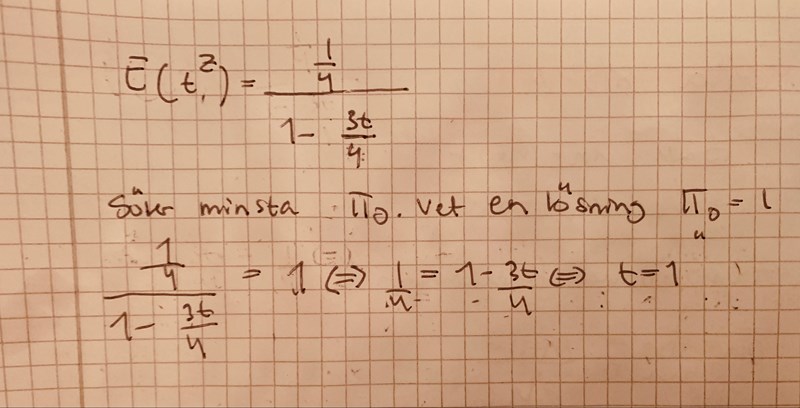 E(t^Z) = (1/4)/(1 - 3t/4)
Söker minsta Π₀. Vet en lösning Π₀ = 1
(1/4)/(1 - 3t/4) = 1 ⇔ 1/4 = 1 - 3t/4 ⇔ t = 1